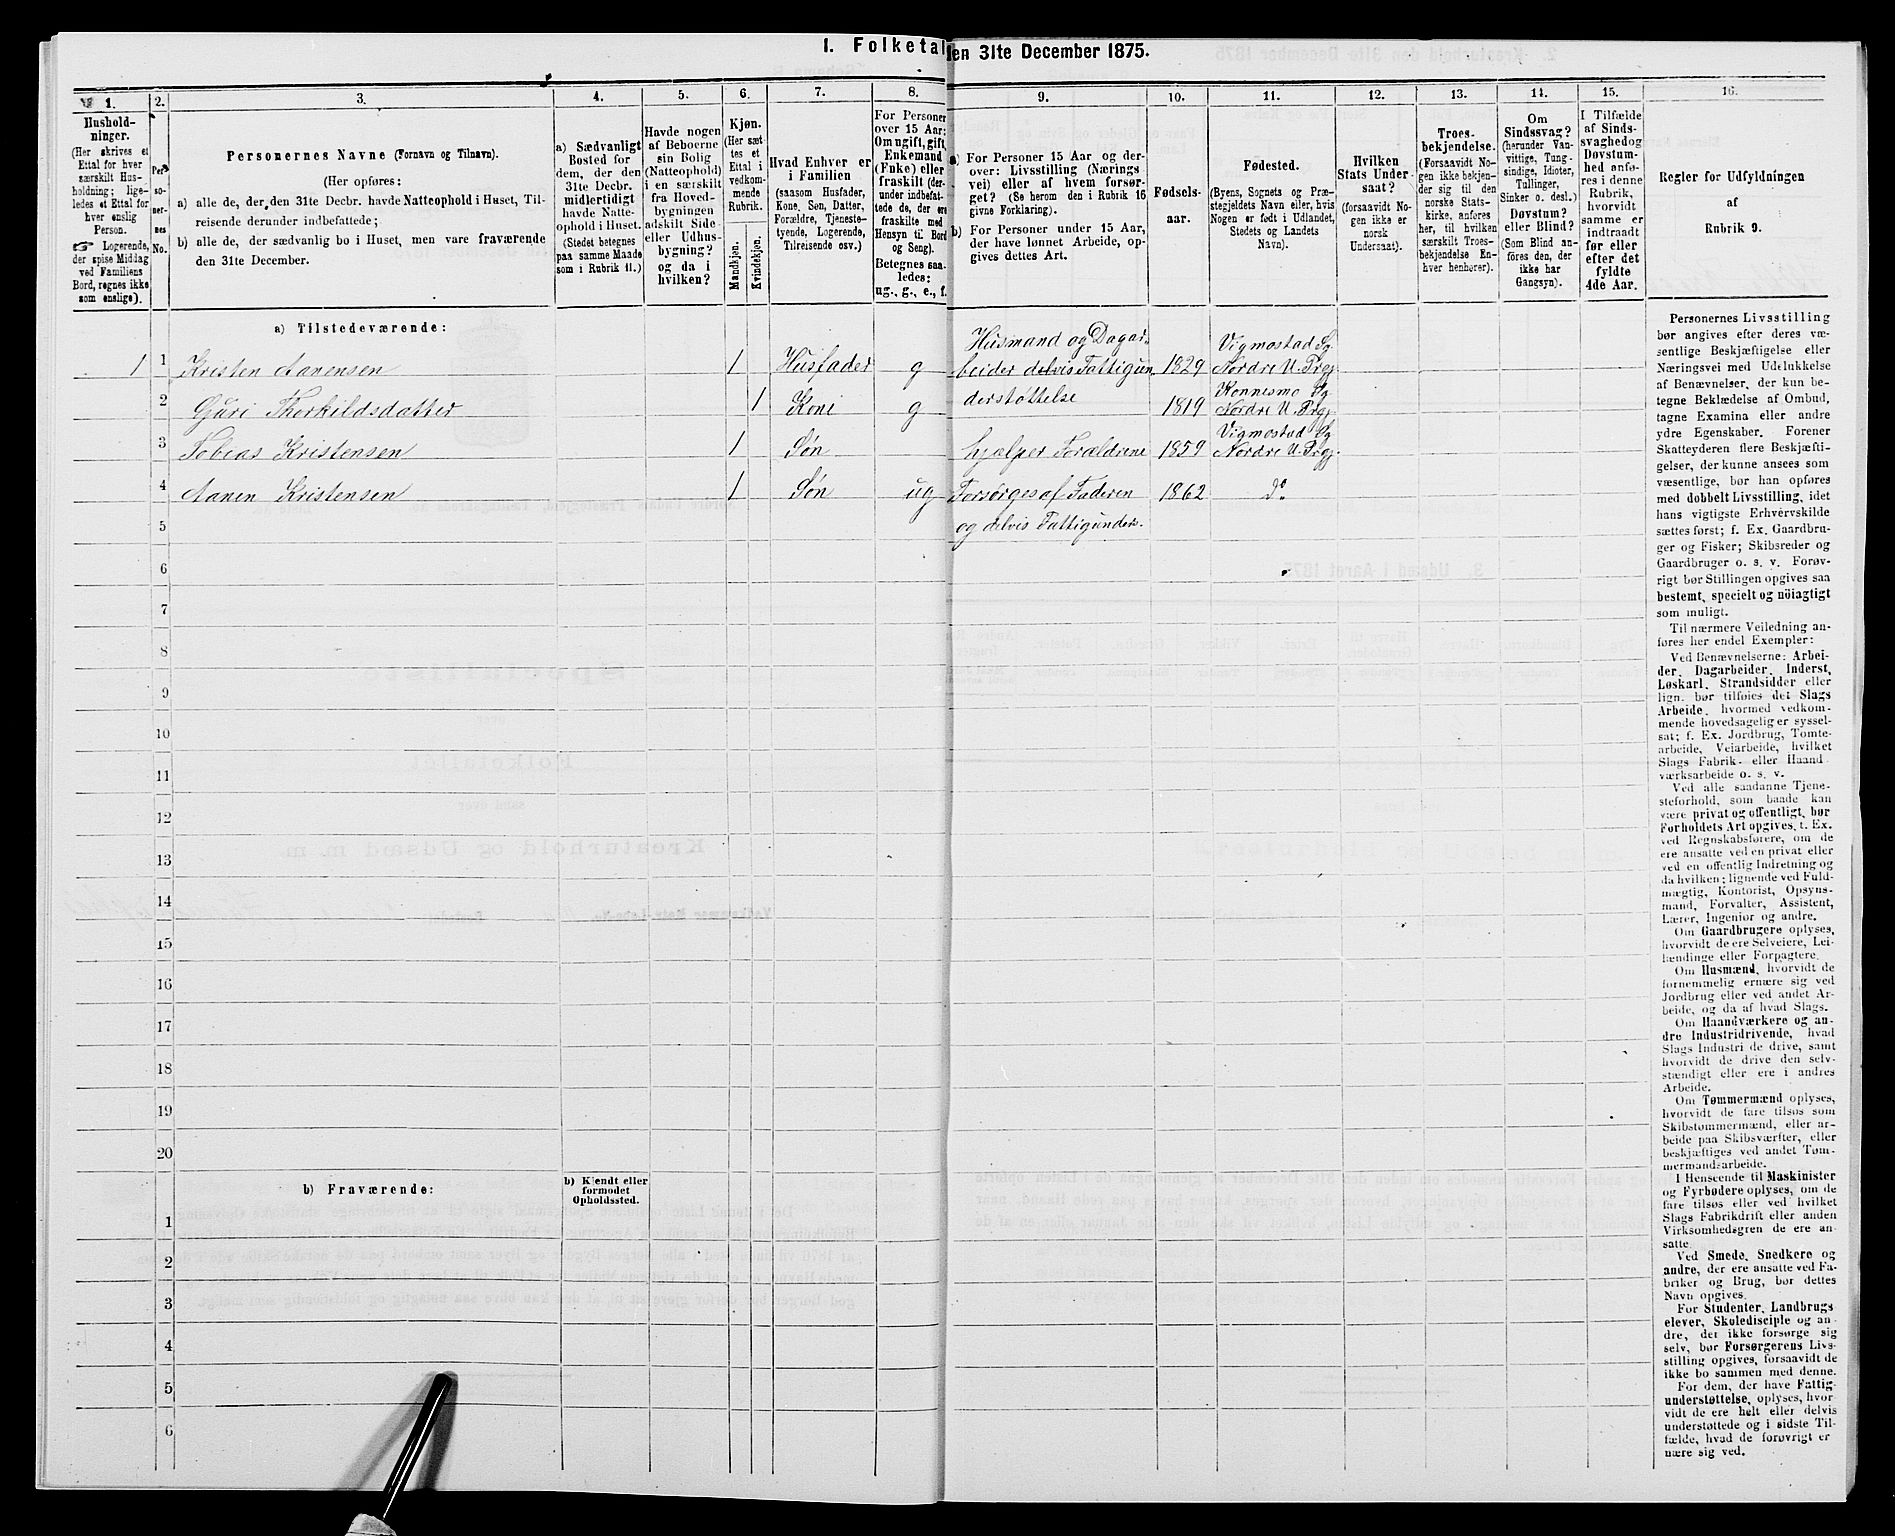 1. Folketal den 31te December 1875.
1.
2.
3.
4.
5.
6.
7.
8.
9.
10.
11.
12.
13.
14.
15.
16.
Hushold-
ninger.
(Her skrives et
Ettal for hver
særskilt Hus-
holdning; lige-
ledes et Ettal for
hver enslig
Person.
☞ Logerende,
der spise Middag
ved Familiens
Bord, regnes ikke
som enslige).
Per-
so-
ner-
nes
No.
Personernes Navne (Fornavn og Tilnavn).
(Her opføres:
a) alle de, der den 31te Decbr. havde Natteophold i Huset, Til-
reisende derunder indbefattede;
b) alle de, der sædvanlig bo i Huset, men vare fraværende
den 31te December.
a) Sædvanligt
Bosted for
dem, der den
31te Decbr.
midlertidigt
havde Natte-
ophold i Huset.
(Stedet betegnes
paa samme Maade
som i Rubrik 11.)
Havde nogen
af Beboerne
sin Bolig
(Natteophold)
i en særskilt
fra Hoved-
bygningen
adskilt Side-
eller Udhus-
bygning?
og da i
hvilken?
Kjøn.
(Her sæt-
tes et
Ettal i
vedkom-
mende
Rubrik.
Mandkjøn.
Kvindekjøn.
Hvad Enhver er
i Familien
(saasom Husfader,
Kone, Søn, Datter,
Forældre, Tjeneste-
tyende, Logerende,
Tilreisende osv.)
For Personer
over 15 Aar:
Om ugift, gift,
Enkemand
(Enke) eller
fraskilt (der-
under indbefat-
tede de, der ere
fraskilte med
Hensyn til Bord
og Seng).
Betegnes saa-
ledes:
ug., g., e., f.
a) For Personer 15 Aar og der-
over: Livsstilling (Nærings-
vei) eller af hvem forsør-
get? (Se herom den i Rubrik 16
givne Forklaring).
b) For Personer under 15 Aar,
der have lønnet Arbeide, op-
gives dettes Art.
Fødsels-
aar.
Fødested.
(Byens, Sognets og Præ-
stegjeldets Navn eller, hvis
Nogen er født i Udlandet,
Stedets og Landets
Navn).
Hvilken
Stats Under-
saat?
(forsaavidt No-
gen ikke er
norsk
Undersaat).
Troes-
bekjendelse.
(Forsaavidt No-
gen ikke bekjen-
der sig til den
norske Stats-
kirke, anføres
her, til hvilken
særskilt Troes-
bekjendelse En-
hver henhører).
Om
Sindssvag?
(herunder Van-
vittige, Tung-
sindige, Idioter,
Tullinger,
Sinker o. desl.)
Døvstum?
eller Blind?
(Som Blind an-
föres den, der
ikke har
Gangsyn).
I Tilfælde
af Sinds-
svaghed og
Døvstum-
hed anfø-
res i denne
Rubrik,
hvorvidt
samme er
indtraadt
før eller
efter det
fyldte
4de Aar.
Regler for Udfyldningen
af
Rubrik 9.
a) Tilstedeværende:
1 1 Kristen Aanensen 1 Husfader g Husmand og Dagar-
beider delvis Fattigun- 1829 Vigmostad Sg.
Nordre U. Prgj.
2 Guri Therkildsdatter 1 Kone g derstøttelse 1819 Konnesmo Sg
Nordre U. Prgj.
3 Tobias Kristensen 1 Søn hjælper Forældrene 1859 Vigmostad Sg
Nordre U. Prgj.
4 Aanen Kristensen 1 Søn ug Forsørges af Faderen 1862 do
5 og delvis Fattigunders.
6
7
8
9
10
11
12
13
14
15
16
17
18
19
20
b) Fraværende:
b) Kjendt eller
formodet
Opholdssted.
1
2
3
4
5
6
Personernes Livsstilling
bør angives efter deres væ-
sentlige Beskjæftigelse eller
Næringsvei med Udelukkelse
af Benævnelser, der kun be-
tegne Beklædelse af Ombud,
tagne Examina eller andre
ydre Egenskaber. Forener
Skatteyderen flere Beskjæfti-
gelser, der kunne ansees som
væsentlige, bør han opføres
med dobbelt Livsstilling, idet
hans vigtigste Erhvervskilde
sættes først; f. Ex. Gaardbru-
ger og Fisker; Skibsreder og
Gaardbruger o. s. v. Forøv-
rigt bør Stillingen opgives saa
bestemt, specielt og nöiagtigt
som muligt.
Til nærmere Veiledning an-
føres her endel Exempler:
Ved Benævnelserne: Arbei-
der, Dagarbeider, Inderst,
Løskarl, Strandsidder eller
lign. bør tilføies det Slags
Arbeide, hvormed vedkom-
mende hovedsagelig er syssel-
sat; f. Ex. Jordbrug, Tomte-
arbeide, Veiarbeide, hvilket
Slags Fabrik- eller Haand-
værksarbeide o. s. v.
Ved alle saadanne Tjene-
steforhold, som baade kan
være privat og offentligt, bør
Forholdets Art opgives, t. Ex.
ved Regnskabsførere, om de
ere ansatte ved en privat eller
ved en offentlig Indretning og
da hvilken; lignende ved Fuld-
mægtig, Kontorist, Opsyns-
mand, Forvalter, Assistent,
Lærer, Ingeniør og andre.
Om Gaardbrugere oplyses,
hvorvidt de ere Selveiere, Lei-
lændinge eller Forpagtere.
Om Husmænd, hvorvidt de
fornemmelig ernære sig ved
Jordbrug eller ved andet Ar-
beide, og da af hvad Slags.
Om Haandværkere og an-
dre Industridrivende, hvad
Slags Industri de drive, samt
hvorvidt de drive den selv-
stændigt eller ere i andres
Arbeide.
Om Tømmermænd oplyses,
hvorvidt de fare tilsøs som
Skibstømmermænd, eller ar-
beide paa Skibsværfter, eller
beskjæftiges ved andet Tøm-
mermandsarbeide.
I Henseende til Maskinister
og Fyrbødere oplyses, om de
fare tilsøs eller ved hvilket
Slags Fabrikdrift eller anden
Virksomhedsgren de ere an-
satte.
Ved Smede, Snedkere og
andre, der ere ansatte ved Fa-
briker og Brug, bør dettes
Navn opgives.
For Studenter, Landbrugs-
elever, Skoledisciple og an-
dre, der ikke forsørge sig
selv, bør Forsørgerens Livs-
stilling opgives, forsaavidt de
ikke bo sammen med denne.
For dem, der have Fattig-
understøttelse, oplyses, hvor-
vidt de ere helt eller delvis
understøttede og i sidste Til-
fælde, hvad de forøvrigt er-
nære sig ved.